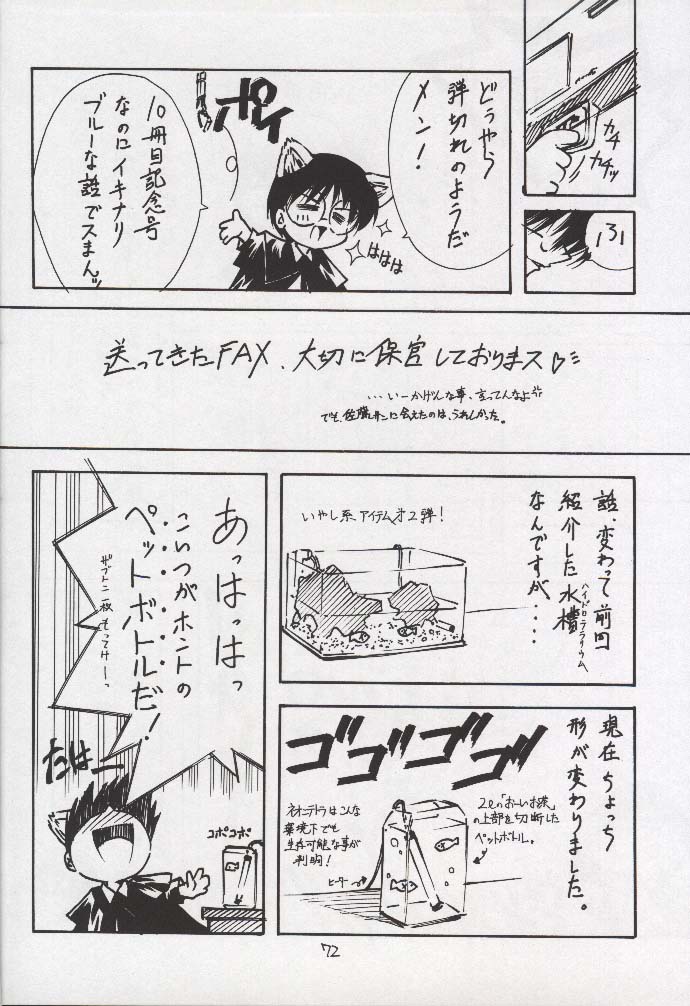 カチ
カチッ
ふ
どうやら
弾切れのようだ
メン!
ポイ
ははは
10冊目記念号
なのにイキナリ
ブルーな話でスまん
送ってきたFAX、大切に保管しておりまス
...いーかげんな事、言ってんなよ
でも、佐藤サンに会えたのは、うれしかった。
話、変わって前回
紹介した水槽
ハイドロテラリウム
なんですが....
いやし系アイテム才2弾!
現在ちょっち
形が変わりました。
ゴゴゴゴ
2ℓの「おーいお茶」
の上部を切断した
ペットボトル。
ネオンテトラはこんな
環境下でも
生存可能な事が
判明!
ヒーター
あっはっはっ
こいつがホントの
ペットボトルだ!
ザブトン一枚もってけーっ
たはー
コポコポ
72